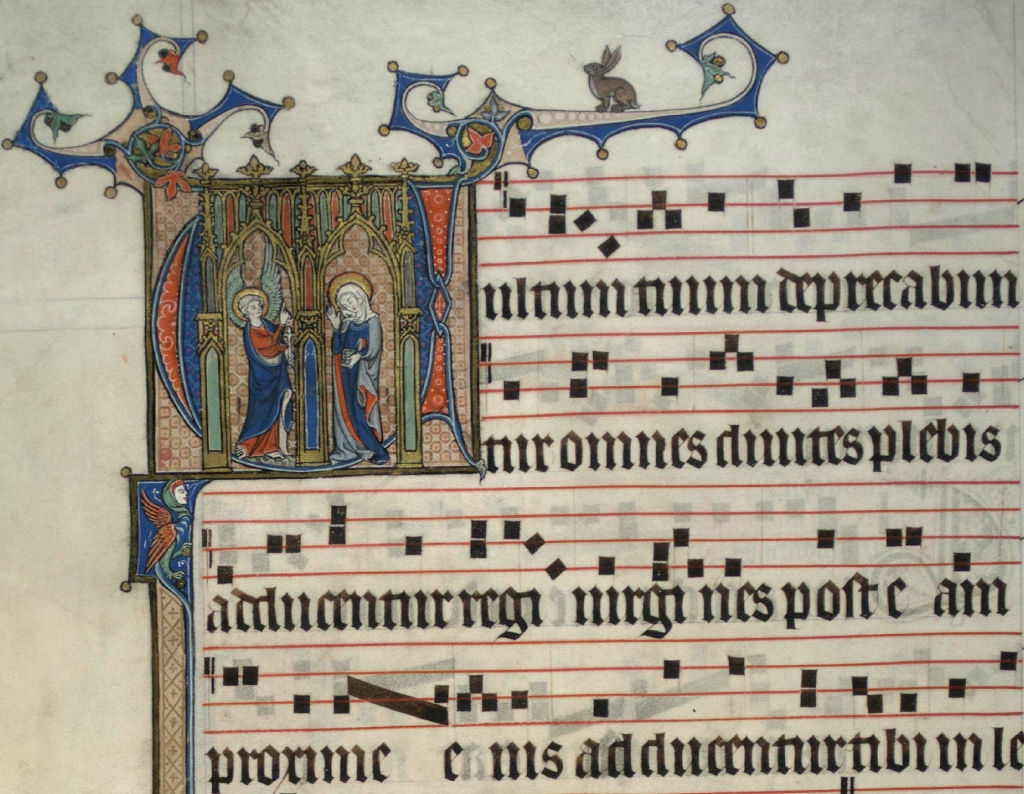 Vultum tuum deprecabun
tur omnes diuites plebis
adducentur regi uirgi nes post e am
proxime e ius adducentur tibi in le